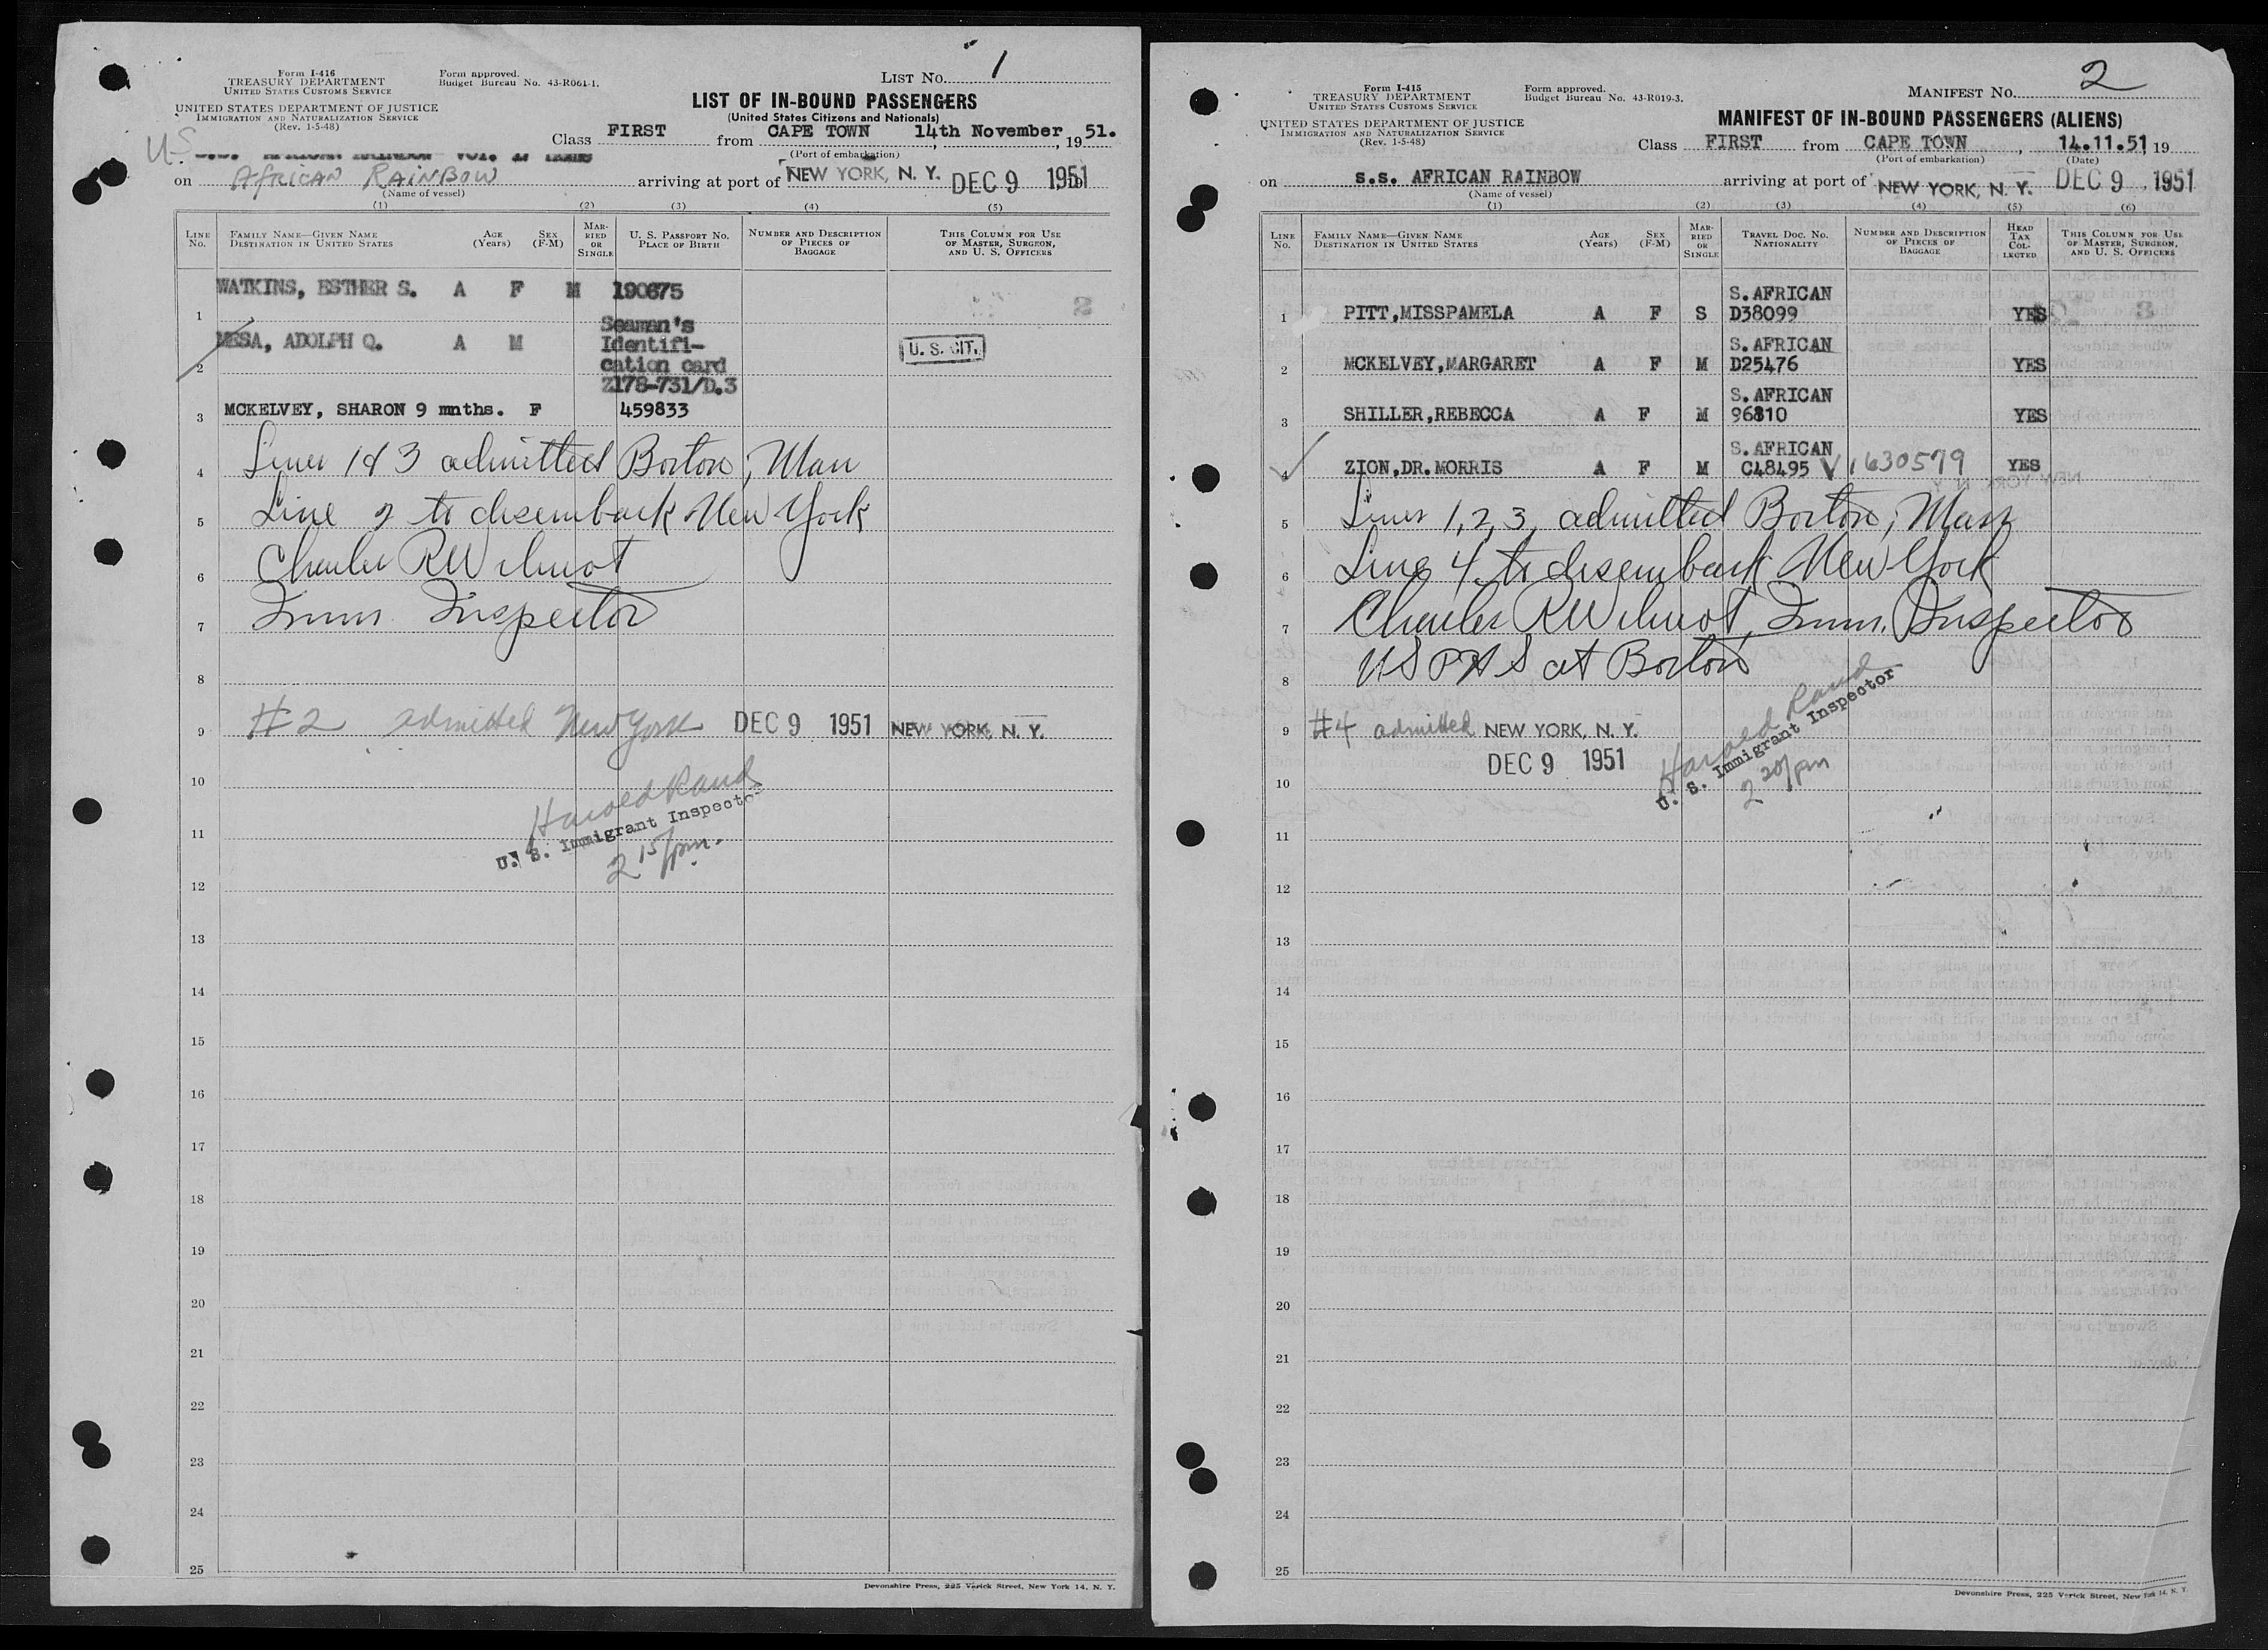 Form I-416
TREASURY DEPARTMENT
UNITED STATES CUSTOMS SERVICE
Form approved.
Budget Bureau No. 43-R061-1.
LIST No. 1
UNITED STATES DEPARTMENT OF JUSTICE
IMMIGRATION AND NATURALIZATION SERVICE
(Rev. 1-5-48)
LIST OF IN-BOUND PASSENGERS
(United States Citizens and Nationals)
US
Class FIRST from CAPE TOWN, 14th November, 1951.
(Port of embarkation)
on AFRICAN RAINBOW arriving at port of NEW YORK, N. Y. DEC 9 1951
(Name of vessel)
(1) (2) (3) (4) (5)
LINE No. FAMILY NAME—GIVEN NAME DESTINATION IN UNITED STATES AGE (Years) SEX (F-M) MARRIED OR SINGLE U. S. PASSPORT No. PLACE OF BIRTH NUMBER AND DESCRIPTION OF PIECES OF BAGGAGE THIS COLUMN FOR USE OF MASTER, SURGEON, AND U. S. OFFICERS
1 WATKINS, ESTHER S. A F M 190675
2 MESA, ADOLPH Q. A M Seaman's Identifi-cation card Z178-731/D.3 U. S. CIT.
3 MCKELVEY, SHARON 9 mnths. F 459833
4 Lines 1 & 3 admitted Boston, Mass
5 Line 2 to disembark New York
6 Charles R Wilmot
7 Imm. Inspector
8
9 #2 admitted New York DEC 9 1951 NEW YORK, N. Y.
10 Harold Rand
11 U. S. Immigrant Inspector
2 15/pm.
12
13
14
15
16
17
18
19
20
21
22
23
24
25
Devonshire Press, 225 Varick Street, New York 14, N. Y.
Form I-415
TREASURY DEPARTMENT
UNITED STATES CUSTOMS SERVICE
Form approved.
Budget Bureau No. 43-R019-3.
MANIFEST No. 2
UNITED STATES DEPARTMENT OF JUSTICE
IMMIGRATION AND NATURALIZATION SERVICE
(Rev. 1-5-48)
MANIFEST OF IN-BOUND PASSENGERS (ALIENS)
Class FIRST from CAPE TOWN, 14.11.51, 19
(Port of embarkation) (Date)
on s.s. AFRICAN RAINBOW arriving at port of NEW YORK, N. Y. DEC 9, 1951
(Name of vessel)
(1) (2) (3) (4) (5) (6)
LINE No. FAMILY NAME—GIVEN NAME DESTINATION IN UNITED STATES AGE (Years) SEX (F-M) MARRIED OR SINGLE TRAVEL DOC. No. NATIONALITY NUMBER AND DESCRIPTION OF PIECES OF BAGGAGE HEAD TAX COLLECTED THIS COLUMN FOR USE OF MASTER, SURGEON, AND U. S. OFFICERS
1 PITT,MISSPAMELA A F S S.AFRICAN D38099 YES
2 MCKELVEY,MARGARET A F M S.AFRICAN D25476 YES
3 SHILLER,REBECCA A F M S.AFRICAN 96810 YES
4 ZION,DR.MORRIS A F M S.AFRICAN C48495 V 1630579 YES
5 Lines 1,2,3, admitted Boston, Mass
6 Line 4 to disembark New York
7 Charles R Wilmot, Imm. Inspector
8 USPHS at Boston
9 #4 admitted NEW YORK, N. Y.
10 DEC 9 1951
Harold Rand
U. S. Immigrant Inspector
2 20/pm
11
12
13
14
15
16
17
18
19
20
21
22
23
24
25
Devonshire Press, 225 Varick Street, New York 14, N. Y.